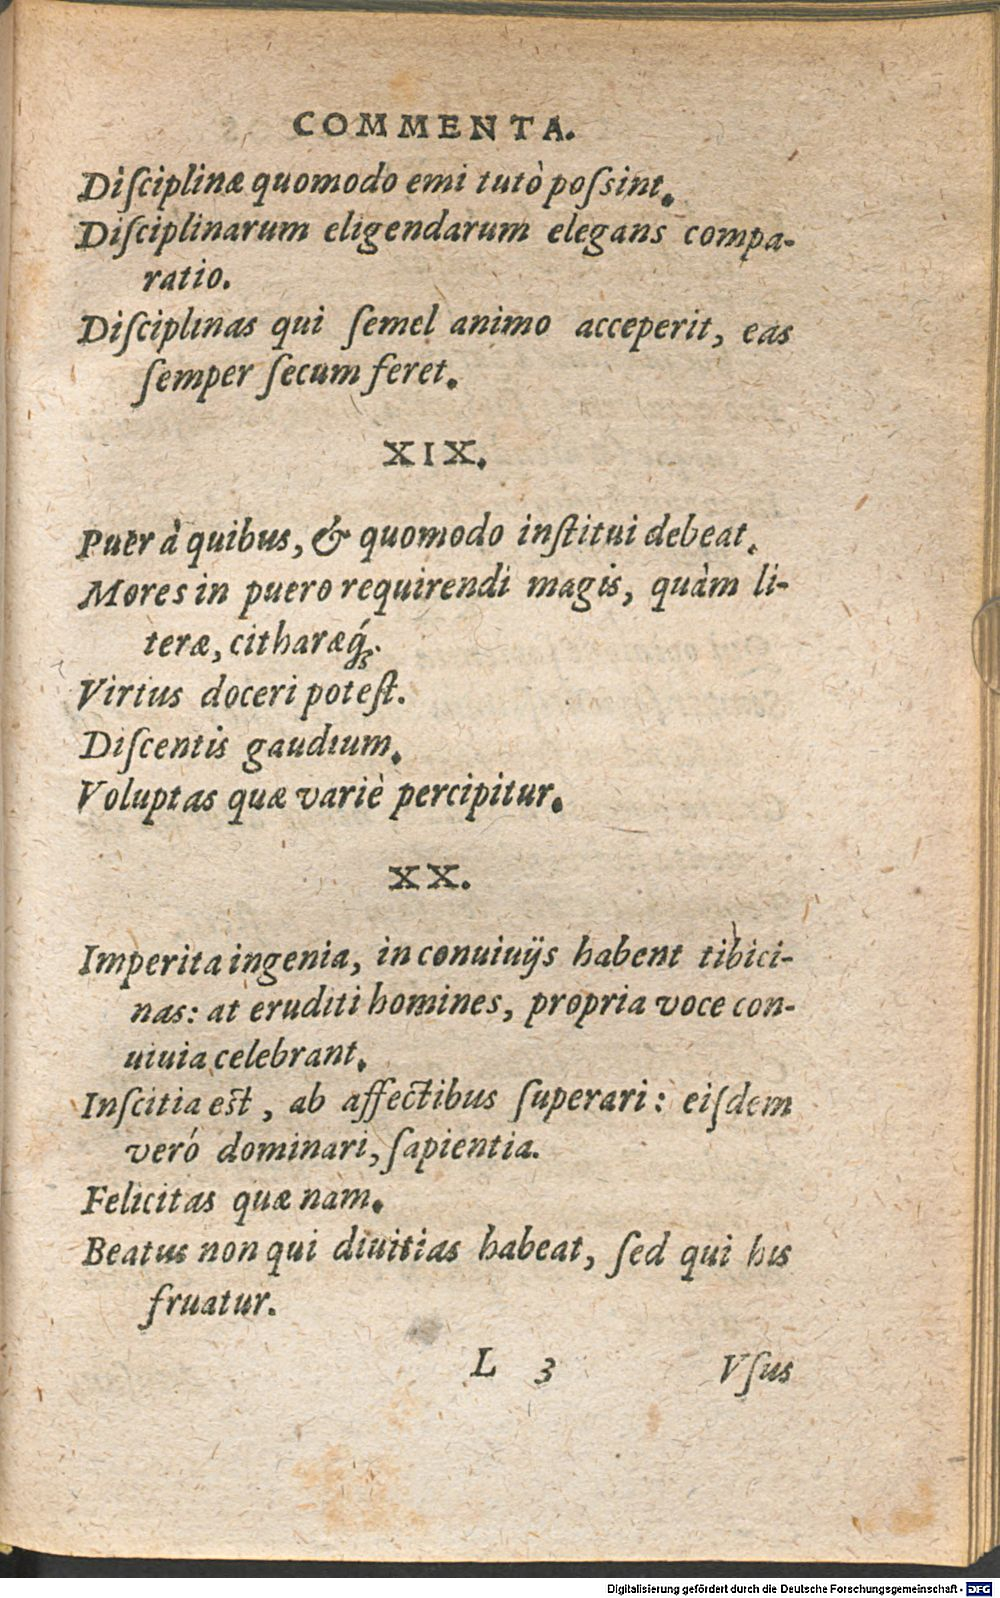 COMMENTA.
Diſciplinæ quomodo emi tutò poſsint.
Diſciplinarum eligendarum elegans compa-
ratio.
Diſciplinas qui ſemel animo acceperit, eas
ſemper ſecum feret.
XIX.
Puer à quibus, & quomodo inſtitui debeat.
Mores in puero requirendi magis, quàm li-
teræ, citharæq́;.
Virtus doceri poteſt.
Diſcentis gaudium.
Voluptas quæ variè percipitur.
XX.
Imperita ingenia, in conuiuijs habent tibici-
nas: at eruditi homines, propria voce con-
uiuia celebrant.
Inſcitia eſt, ab affectibus ſuperari: eiſdem
veró dominari, ſapientia.
Felicitas quæ nam.
Beatus non qui diuitias habeat, ſed qui his
fruatur.
L 3 Vſus
Digitalisierung gefördert durch die Deutsche Forschungsgemeinschaft - DFG